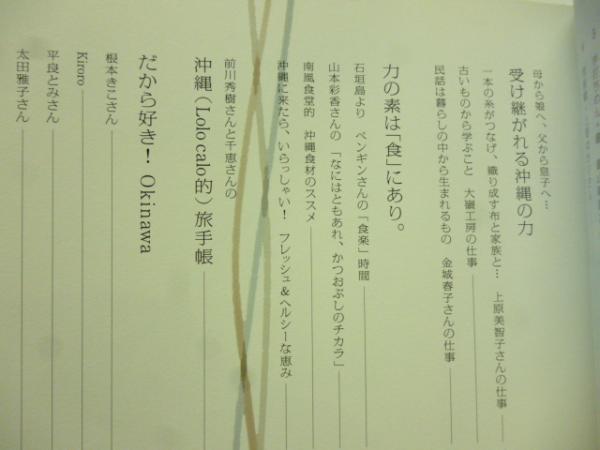 母から娘へ、父から息子へ…
受け継がれる沖縄の力
一本の糸がつなげ、織り成す布と家族と… 上原美智子さんの仕事
古いものから学ぶこと 大嶺工房の仕事
民話は暮らしの中から生まれるもの 金城春子さんの仕事
力の素は「食」にあり。
石垣島より ペンギンさんの「食楽」時間
山本彩香さんの「なにはともあれ、かつおぶしのチカラ」
南風食堂的 沖縄食材のススメ
沖縄に来たら、いらっしゃい! フレッシュ&ヘルシーな恵み
前川秀樹さんと千恵さんの
沖縄(Lolo calo的)旅手帳
だから好き! Okinawa
根本きこさん
Kiroro
平良とみさん
太田雅子さん